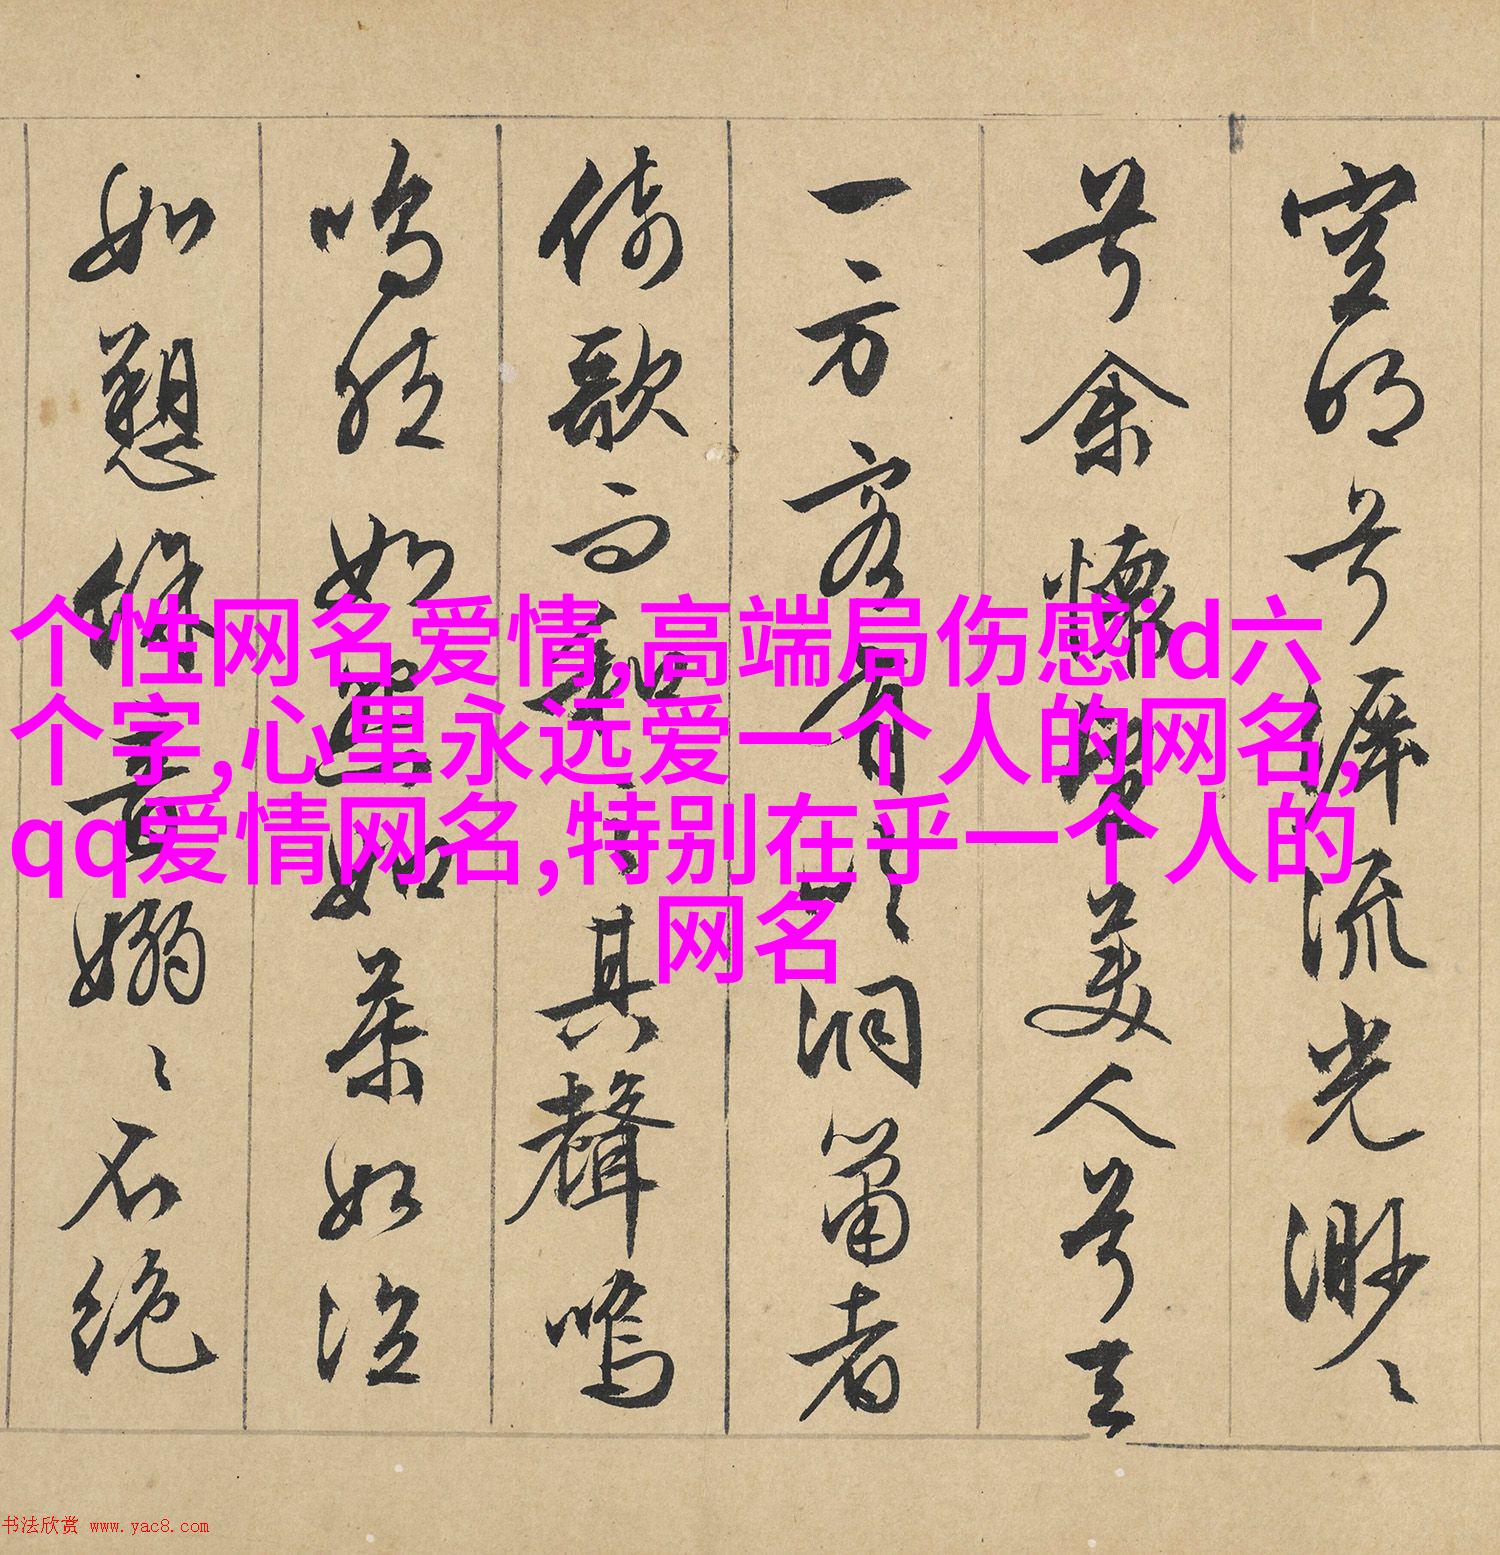 空明兮泝流光渺〻
兮余懷望美人兮天
一方客有吹洞簫者
倚歌而和之其聲嗚
嗚然如怨如慕如泣
如愬餘音嫋〻不絕
个性网名爱情,高端局伤感id六
个字,心里永远爱一个人的网名,
qq爱情网名,特别在乎一个人的
网名
书法欣赏 www.yac8.com